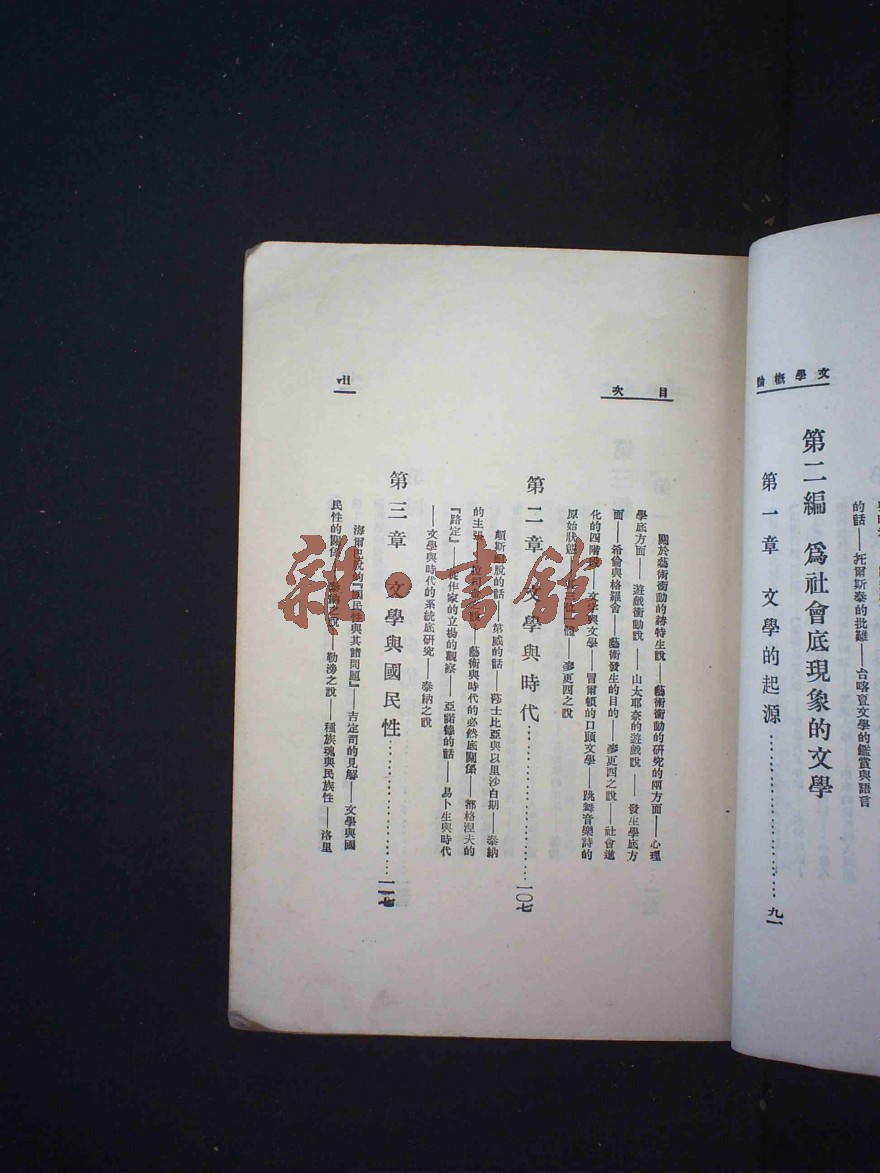 文學概論
的話——托爾斯泰的批難——台喀豆文學的鑑賞與語言
第二編 爲社會底現象的文學
第一章 文學的起源……九一
目次
關於藝術衝動的赫特生說——藝術衝動的研究的兩方面——心理
學底方面——遊戲衝動說——山太耶奈的遊戲說——發生學底方
面——希倫與格羅舍——藝術發生的目的——麥更西之說——社會進
化的四階段——文字與文學——冒爾頓的口頭文學——跳舞音樂詩的
原始狀態——麥更西之說
第二章 文學與時代……一〇七
的話——第威的話——莎士比亞與以里沙白期——泰納
的主張——之說——藝術與時代的必然底關係——都格涅夫的
『路定』——從作家的立場的觀察——亞諾德的話——易卜生與時代
——文學與時代的系統底研究——泰納之說
第三章 文學與國民性……一一七
海爾 『國民性與其諸問題』——吉定司的見解——文學與國
民性的關係——泰納之說——勒滂之說——種族魂與民族性——洛里
vii
雜·書館